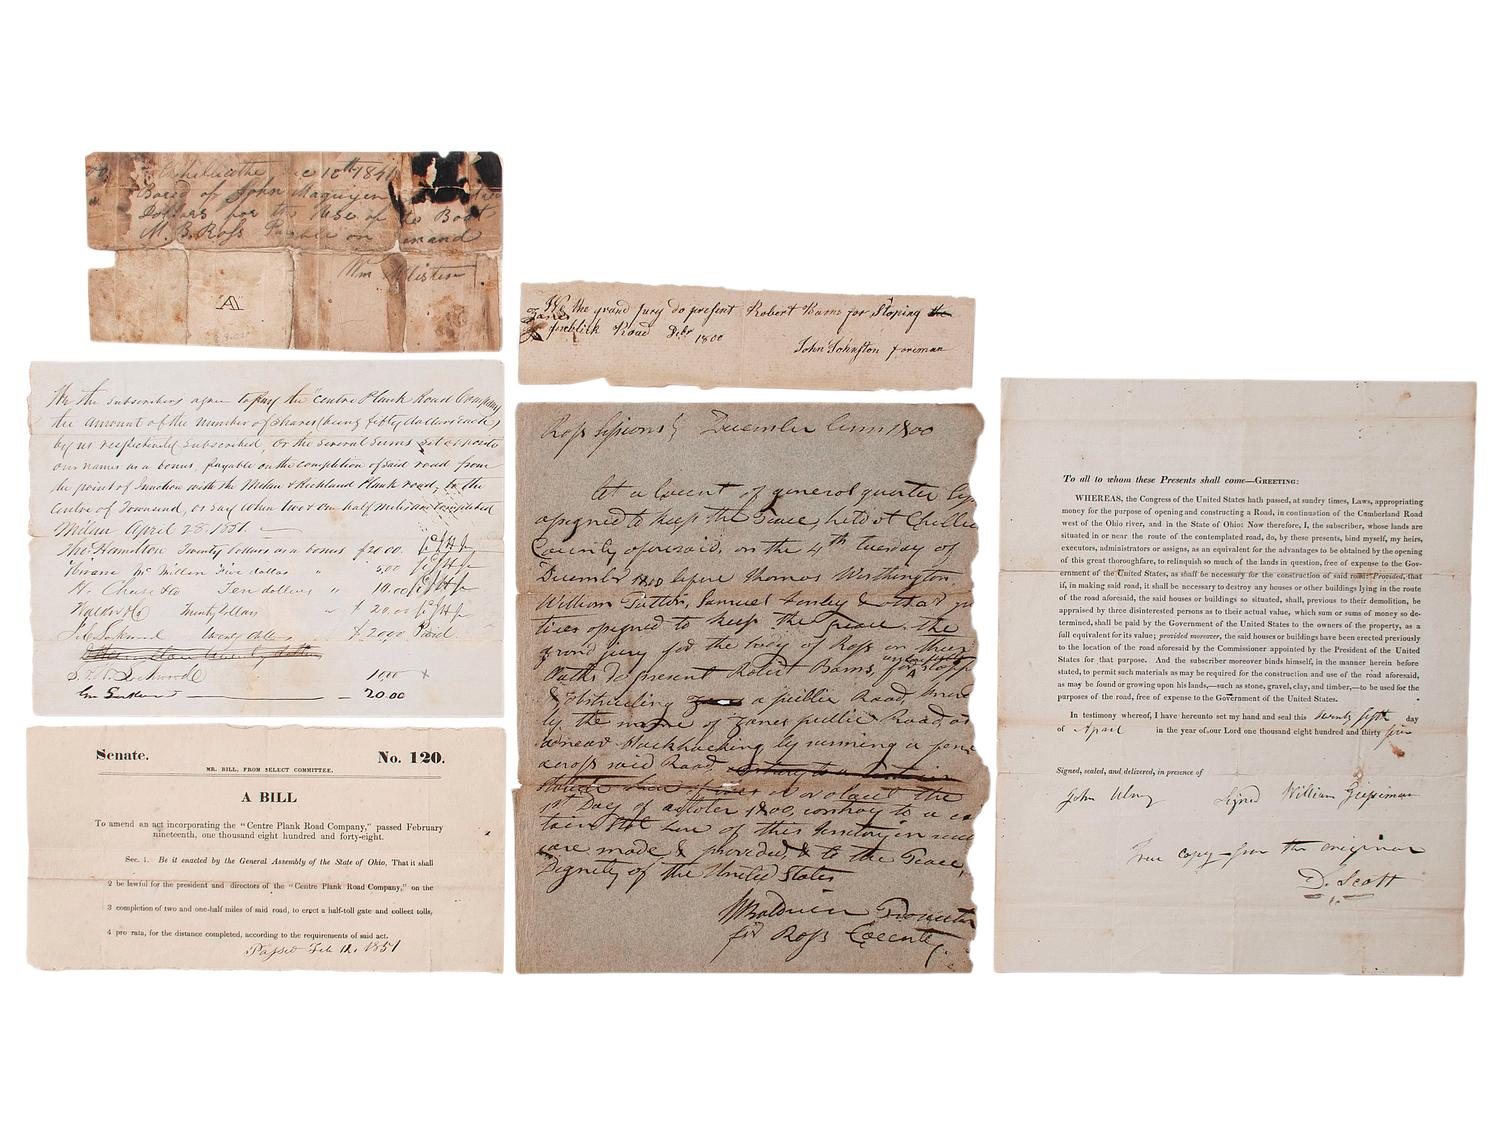 Chilicothe Dec 10th 1841
Bored of John Maguijen
Dollars for the Use of Boat
M. B. Ross Payable on Demand
Wm
A
We the grand Jury do present Robert Bams for Stoping the
Zanes publick Road Dcbr 1800
John Johnston foreman
We the subscribers agree to pay the "Centre Plank Road Company
the amount of the number of shares (being fifty dollars each)
by us respectively subscribed, or the several sums set opposite
our names as a bonus, payable on the completion of said road from
the point of junction with the Milan & Richland Plank road, to the
Centre of Townsend, or say when two & one half miles are completed
Milan April 28. 1851.
Tho. Hamilton Twenty Dollars as a bonus $20.00
McMillen Five dollars " 5.00
H. Chase & Co Ten dollars " 10.00
Twenty Dollars " $20.00
Lockwood twenty dolls $20.00 Paid
Lockwood 10.00 x
20.00
Senate. No. 120.
MR. BILL, FROM SELECT COMMITTEE.
A BILL
To amend an act incorporating the "Centre Plank Road Company," passed February
nineteenth, one thousand eight hundred and forty-eight.
Sec. 1. Be it enacted by the General Assembly of the State of Ohio, That it shall
2 be lawful for the president and directors of the "Centre Plank Road Company," on the
3 completion of two and one-half miles of said road, to erect a half-toll gate and collect tolls,
4 pro rata, for the distance completed, according to the requirements of said act.
Passed Feb 12, 1851
Ross sessions December term 1800
At a Court of general quarter
assigned to keep the Peace, held at Chillic
County aforesaid, on the 4th tuesday of
December 1800 before Thomas Worthington
William Patton, Samuel Finley & other jus
tices assigned to keep the peace. the
grand jury for the body of Ross on their
Oaths do present Robert Bams, for unlawfully stopp
& obstructing a public Road, know
by the name of Zanes public Road, at
or near by running a fence
across said Road, on or about the
1st Day of October 1800, contrary to a cer
tain law of this Territory in such
case made & provided, & to the Peace,
Dignity of the United States
W Baldwin Prosecutor
for Ross County
To all to whom these Presents shall come—GREETING:
WHEREAS, the Congress of the United States hath passed, at sundry times, Laws, appropriating
money for the purpose of opening and constructing a Road, in continuation of the Cumberland Road
west of the Ohio river, and in the State of Ohio: Now therefore, I, the subscriber, whose lands are
situated in or near the route of the contemplated road, do, by these presents, bind myself, my heirs,
executors, administrators or assigns, as an equivalent for the advantages to be obtained by the opening
of this great thoroughfare, to relinquish so much of the lands in question, free of expense to the Gov-
ernment of the United States, as shall be necessary for the construction of said road: Provided, that
if, in making said road, it shall be necessary to destroy any houses or other buildings lying in the route
of the road aforesaid, the said houses or buildings so situated, shall, previous to their demolition, be
appraised by three disinterested persons as to their actual value, which sum or sums of money so de-
termined, shall be paid by the Government of the United States to the owners of the property, as a
full equivalent for its value; provided moreover, the said houses or buildings have been erected previously
to the location of the road aforesaid by the Commissioner appointed by the President of the United
States for that purpose. And the subscriber moreover binds himself, in the manner herein before
stated, to permit such materials as may be required for the construction and use of the road aforesaid,
as may be found or growing upon his lands,—such as stone, gravel, clay, and timber,—to be used for the
purposes of the road, free of expense to the Government of the United States.
In testimony whereof, I have hereunto set my hand and seal this twenty fifth day
of April in the year of our Lord one thousand eight hundred and thirty five
Signed, sealed, and delivered, in presence of
John Ulmy Signed William
True copy from the original
D. Scott